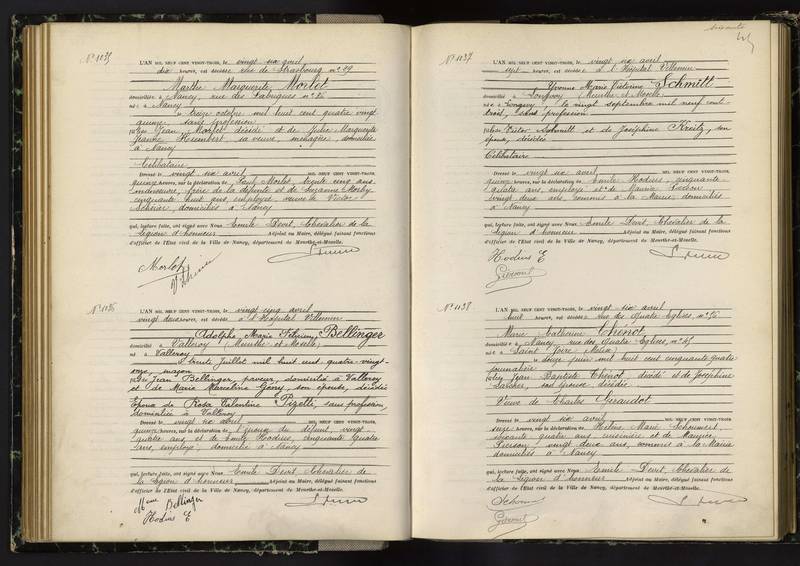 N° 1035
L'AN MIL NEUF CENT VINGT-TROIS, le vingt six avril
dix heures, est décédée rue de Strasbourg n° 29
Marthe Marguerite Morlot
domiciliée à Nancy, rue des
née à Nancy
treize octobre mil huit cent quatre vingt
quinze, sans profession
Jean Morlot décédé et de Julie Marguerite
Jeanne Humbert, sa veuve, ménagère, domiciliée
à Nancy
Célibataire
Dressé le vingt six avril MIL NEUF CENT VINGT-TROIS,
quinze heures, sur la déclaration de Paul Morlot, trente cinq ans
frère de la défunte et de Suzanne
cinquante huit ans, employée, veuve de Victor
domiciliés à Nancy
qui, lecture faite, ont signé avec Nous Emile Devit, Chevalier de la
Légion d'honneur Adjoint au Maire, délégué faisant fonctions
d'officier de l'Etat civil de la Ville de Nancy, département de Meurthe-et-Moselle.
Morlot
N° 1036
L'AN MIL NEUF CENT VINGT-TROIS, le vingt cinq avril
vingt deux heures, est décédé à l'Hôpital Villemin
Adolphe Marie Bellinger
domicilié à Valleroy (Meurthe et Moselle)
né à Valleroy
trente Juillot mil huit cent quatre-vingt-
onze, maçon
Jean Bellinger, paveur, domicilié à Valleroy
et de Marie son épouse, décédée
Epoux de Rosa Valentine Pizetti, sans profession,
domiciliée à Valleroy
Dressé le vingt six avril MIL NEUF CENT VINGT-TROIS,
quinze heures, sur la déclaration de du défunt, vingt
quatre ans, et de Emile Hodius, cinquante quatre
ans, employé, domicilié à Nancy
qui, lecture faite, ont signé avec Nous Emile Devit Chevalier de
la Légion d'honneur Adjoint au Maire, délégué faisant fonctions
d'officier de l'Etat civil de la Ville de Nancy, département de Meurthe-et-Moselle.
Mme Bellinger
Hodius E
N° 1037
L'AN MIL NEUF CENT VINGT-TROIS, le vingt six avril
sept heures, est décédée à l'Hôpital Villemin
Yvonne Marie Victorine Schmitt
domiciliée à Longwy (Meurthe et Moselle)
née à Longwy, le vingt septembre mil neuf cent
trois, sans profession
Victor Schmitt et de Joséphine Kreitz, son
épouse, décédés
Célibataire
Dressé le vingt six avril MIL NEUF CENT VINGT-TROIS,
quinze heures, sur la déclaration de Emile Hodius, cinquante
quatre ans, employé et de Maurice Pierson
vingt deux ans, commis à la Mairie domiciliés
à Nancy
qui, lecture faite, ont signé avec Nous Emile Devit, Chevalier de la
Légion d'honneur Adjoint au Maire, délégué faisant fonctions
d'officier de l'Etat civil de la Ville de Nancy, département de Meurthe-et-Moselle.
Hodius E
N° 1038
L'AN MIL NEUF CENT VINGT-TROIS, le vingt six avril
huit heures, est décédée rue des Quatre Eglises, n° 56
Marie Catherine Thénot
domiciliée à Nancy, rue des Quatre Eglises, n° 45
née à Saint (Meuse)
douze juin mil huit cent cinquante quatre
journalière
Jean Baptiste Thénot, décédé et de Joséphine
Larcher, son épouse décédée
Veuve de Charles Giraudot
Dressé le vingt six avril MIL NEUF CENT VINGT-TROIS,
seize heures, sur la déclaration de Hélène Marie
soixante quatre ans cuisinière et de Maurice
Pierson vingt deux ans, commis à la Mairie
domiciliés à Nancy
qui, lecture faite, ont signé avec Nous Emile Devit, Chevalier de
la Légion d'honneur Adjoint au Maire, délégué faisant fonctions
d'officier de l'Etat civil de la Ville de Nancy, département de Meurthe-et-Moselle.